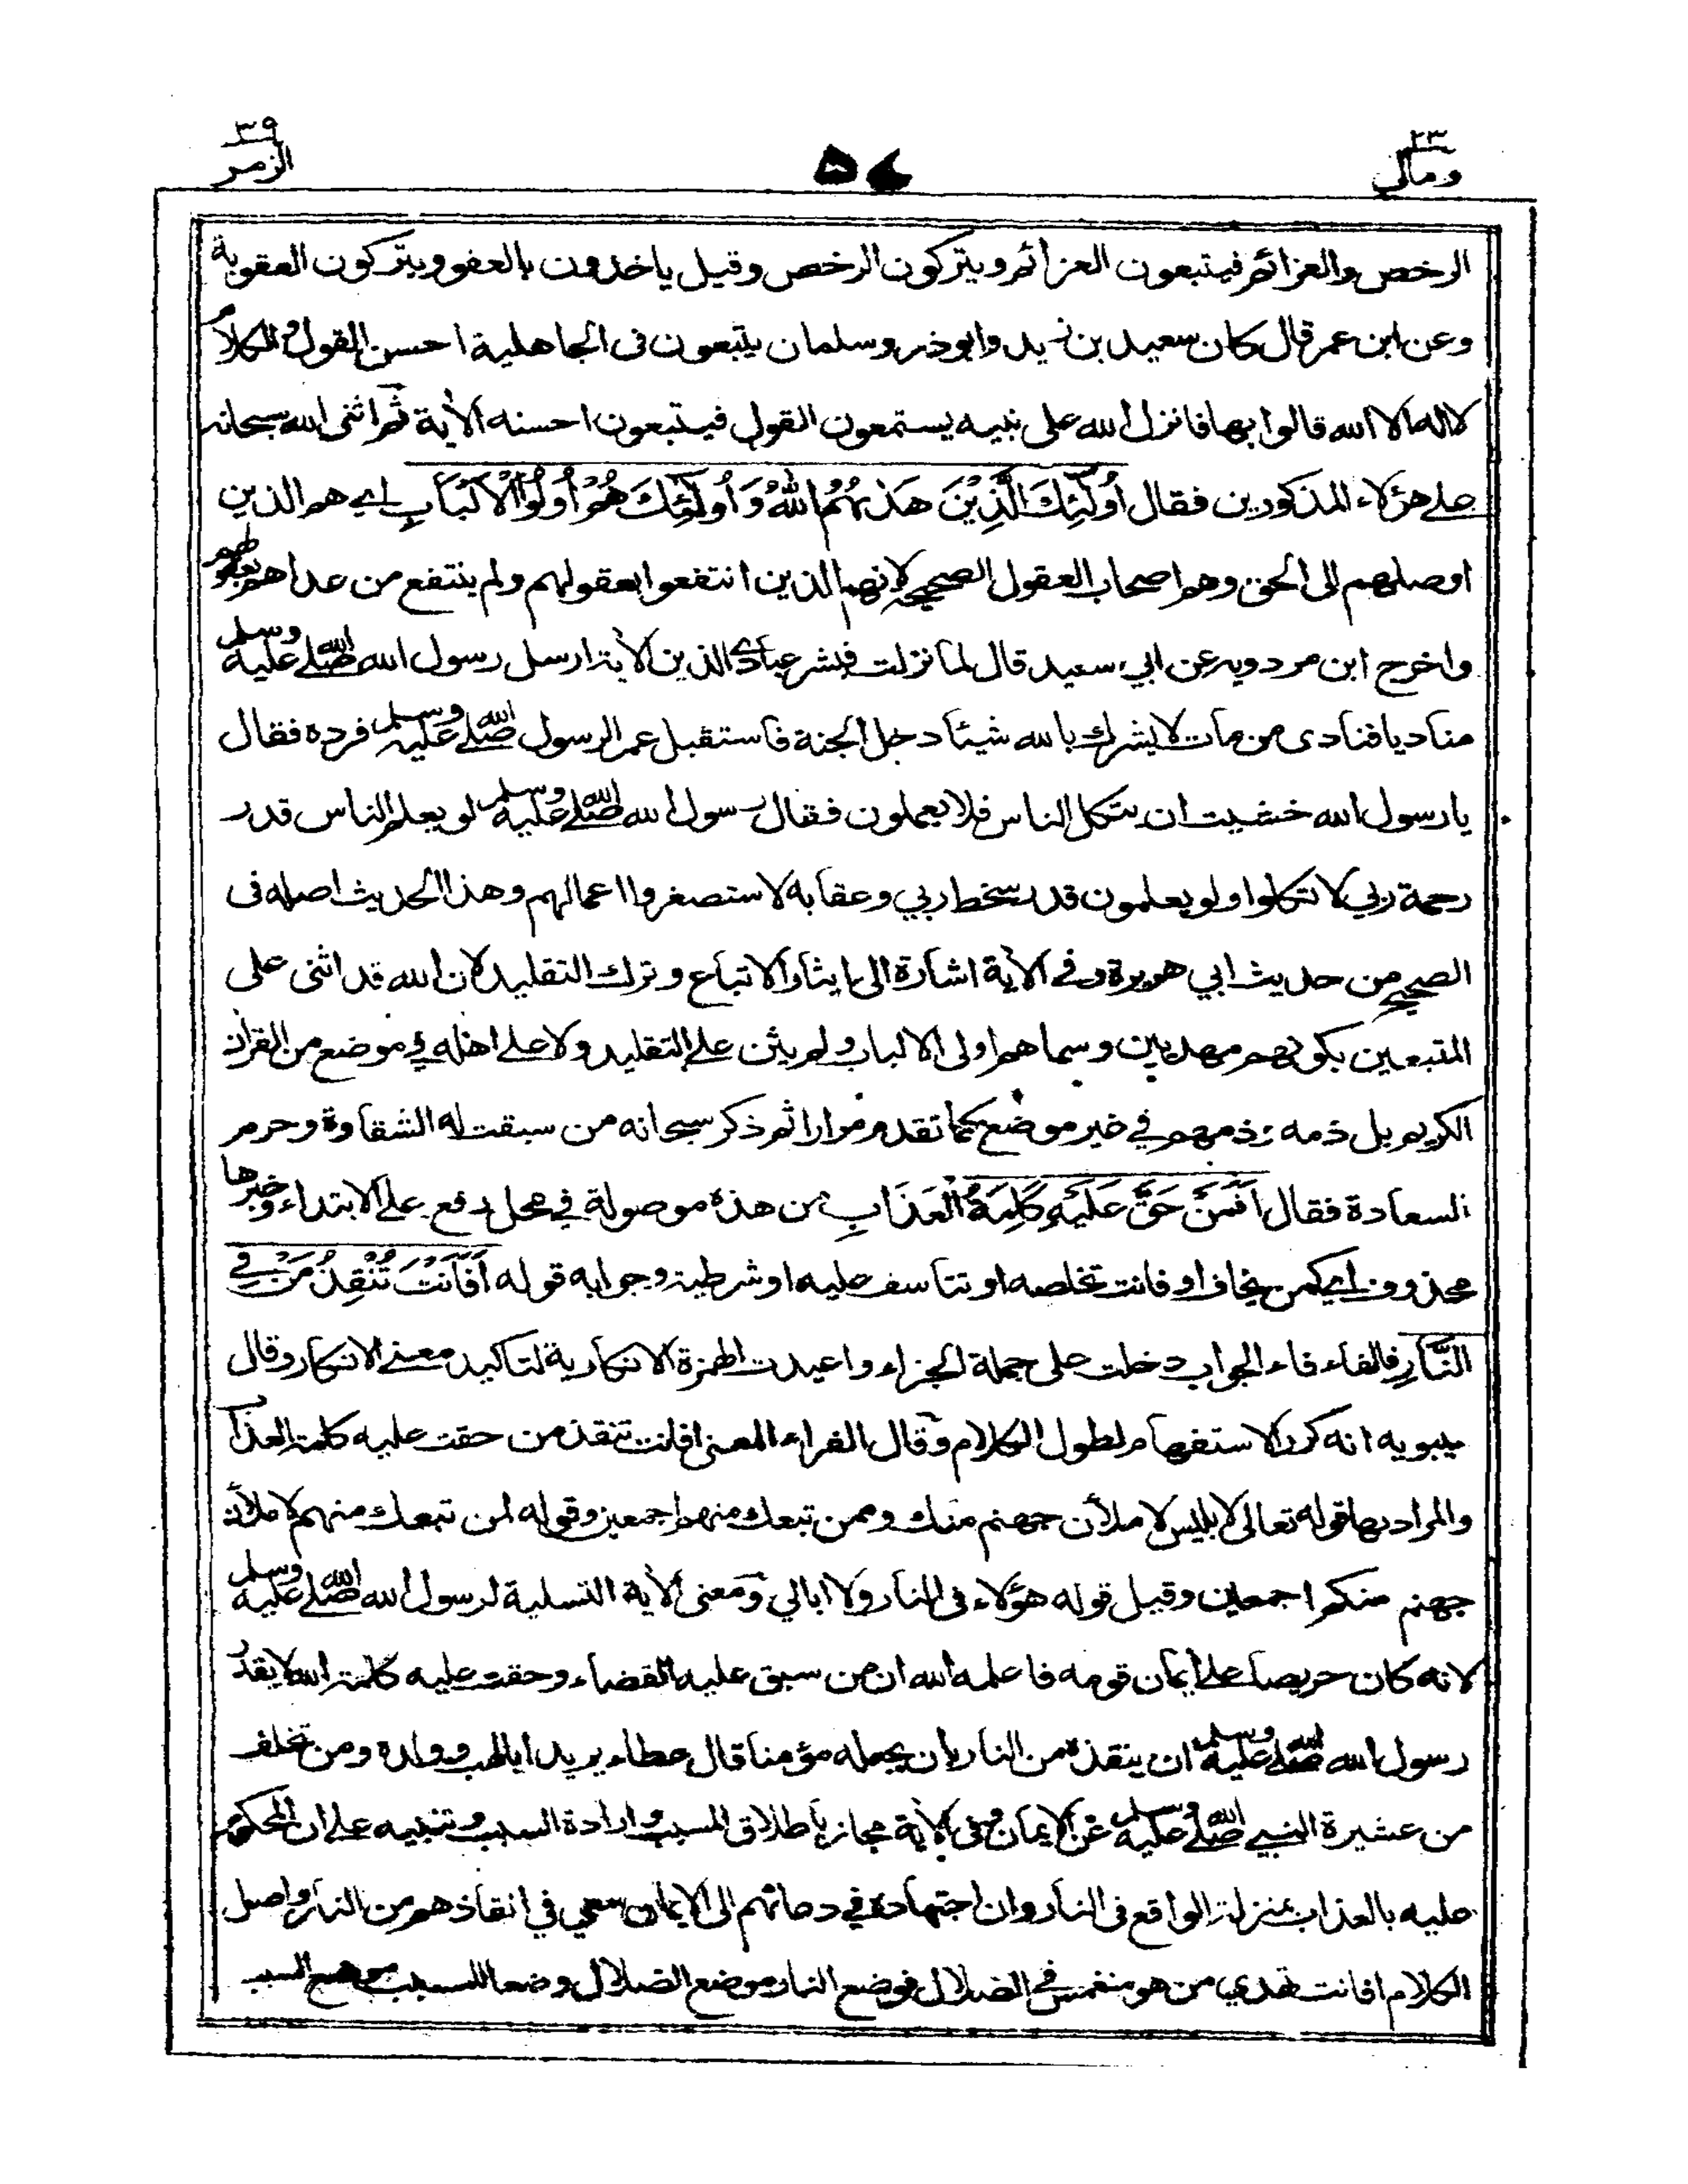 ٢٣
ومالي
٥٤
٣٩
الزمر
الرخص والعزائم فيتبعون العزائم ويتركون الرخص وقيل ياخذون بالعفو ويتركون العقوبة
وعن ابن عمر قال كان سعيد بن زيد وابوذر وسلمان يتبعون فى الجاهلية احسن القول والكلام
لا اله الا الله قالوا بها فانزل الله على نبيه يستمعون القول فيتبعون احسنه الأية ثم اثنى الله سبحانه
على هؤلاء المذكورين فقال أُولَٰئِكَ الَّذِيْنَ هَدٰىهُمُ اللهُ وَأُولَٰئِكَ هُمْ أُولُوا الْأَلْبَابِ اي هم الذين
اوصلهم الى الحق وهم اصحاب العقول الصحيحة لانهم الذين انتفعوا بعقولهم ولم ينتفع من عداهم بعقولهم
واخرج ابن مردويه عن ابي سعيد قال لما نزلت فبشر عبادي الذين الأية ارسل رسول الله صلى الله عليه وسلم
مناديا فنادى من مات لا يشرك بالله شيئا دخل الجنة فاستقبل عمر الرسول صلى الله عليه وسلم فرده فقال
يا رسول الله خشيت ان يتكل الناس فلا يعملون فقال رسول الله صلى الله عليه وسلم لو يعلم الناس قدر
رحمة ربي لاتكلوا ولو يعلمون قدر سخط ربي وعقابه لاستصغروا اعمالهم وهذا الحديث اصله فى
الصحيح من حديث ابي هريرة وفي الأية اشارة الى ايثار الاتباع وترك التقليد لان الله قد اثنى على
المتبعين بكونهم مهديين وسماهم اولى الالباب ولم يثن على التقليد ولا على اهله في موضع من القرأن
الكريم بل ذمه وذمهم في غير موضع كما تقدم مرارا ثم ذكر سبحانه من سبقت له الشقاوة وحرم
السعادة فقال أَفَمَنْ حَقَّ عَلَيْهِ كَلِمَةُ الْعَذَابِ من هذه موصولة في محل رفع على الابتداء وخبرها
محذوف اي كمن يخاف او فانت تخلصه او تتاسف عليه او شرطية وجوابه قوله أَفَأَنْتَ تُنْقِذُ مَنْ فِي
النَّارِ فالفاء فاء الجواب دخلت على جملة الجزاء واعيدت الهمزة الانكارية لتاكيد معنى الانكار وقال
سيبويه انه كرر الاستفهام لطول الكلام وقال الفراء المعنى افانت تنقذ من حقت عليه كلمة العذاب
والمراد بها قوله تعالى لابليس لاملأن جهنم منك وممن تبعك منهم اجمعين وقوله لمن تبعك منهم لاملأن
جهنم منكم اجمعين وقيل قوله هؤلاء فى النار ولا ابالي ومعنى الأية التسلية لرسول الله صلى الله عليه وسلم
لانه كان حريصا على ايمان قومه فاعلمه الله ان من سبق عليه القضاء وحقت عليه كلمة الله لا يقدر
رسول الله صلى الله عليه وسلم ان ينقذه من النار بان يجعله مؤمنا قال عطاء يريد ابا لهب وولده ومن تخلف
من عشيرة النبي صلى الله عليه وسلم عن الايمان وفى الأية مجاز باطلاق المسبب وارادة السبب وتنبيه على ان المحكوم
عليه بالعذاب بمنزلة الواقع فى النار وان اجتهاده في دعائهم الى الايمان سعي في انقاذهم من النار واصل
الكلام افانت تهدي من هو منغمس في الضلال فوضع النار موضع الضلال وضعا للمسبب موضع السبب